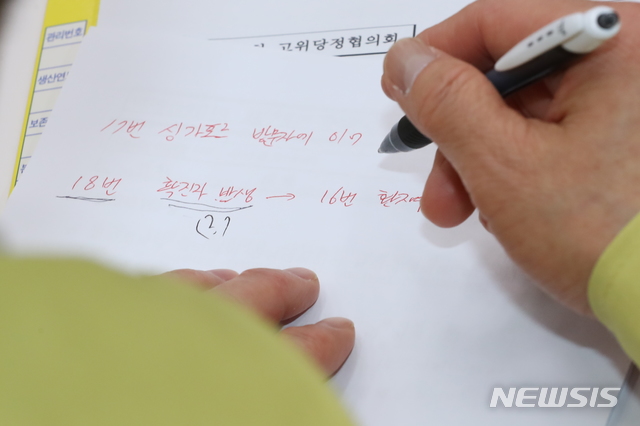 관리번호
고위당정협의회
생산연
보존
17번 싱가포르 방문자이
18번 확진자 발생 → 16번 환자
(?)
NEWSIS